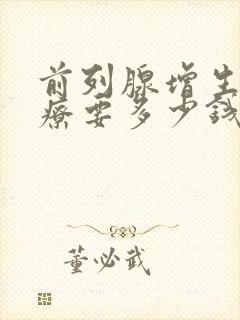 前列腺增生
療要多少錢
董必武